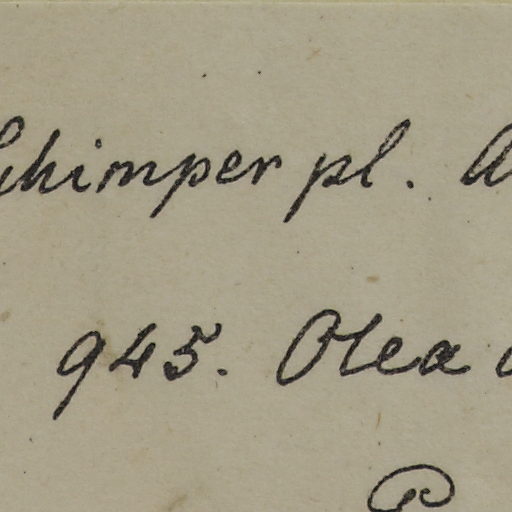 Schimper pl. A
945. Olea
P